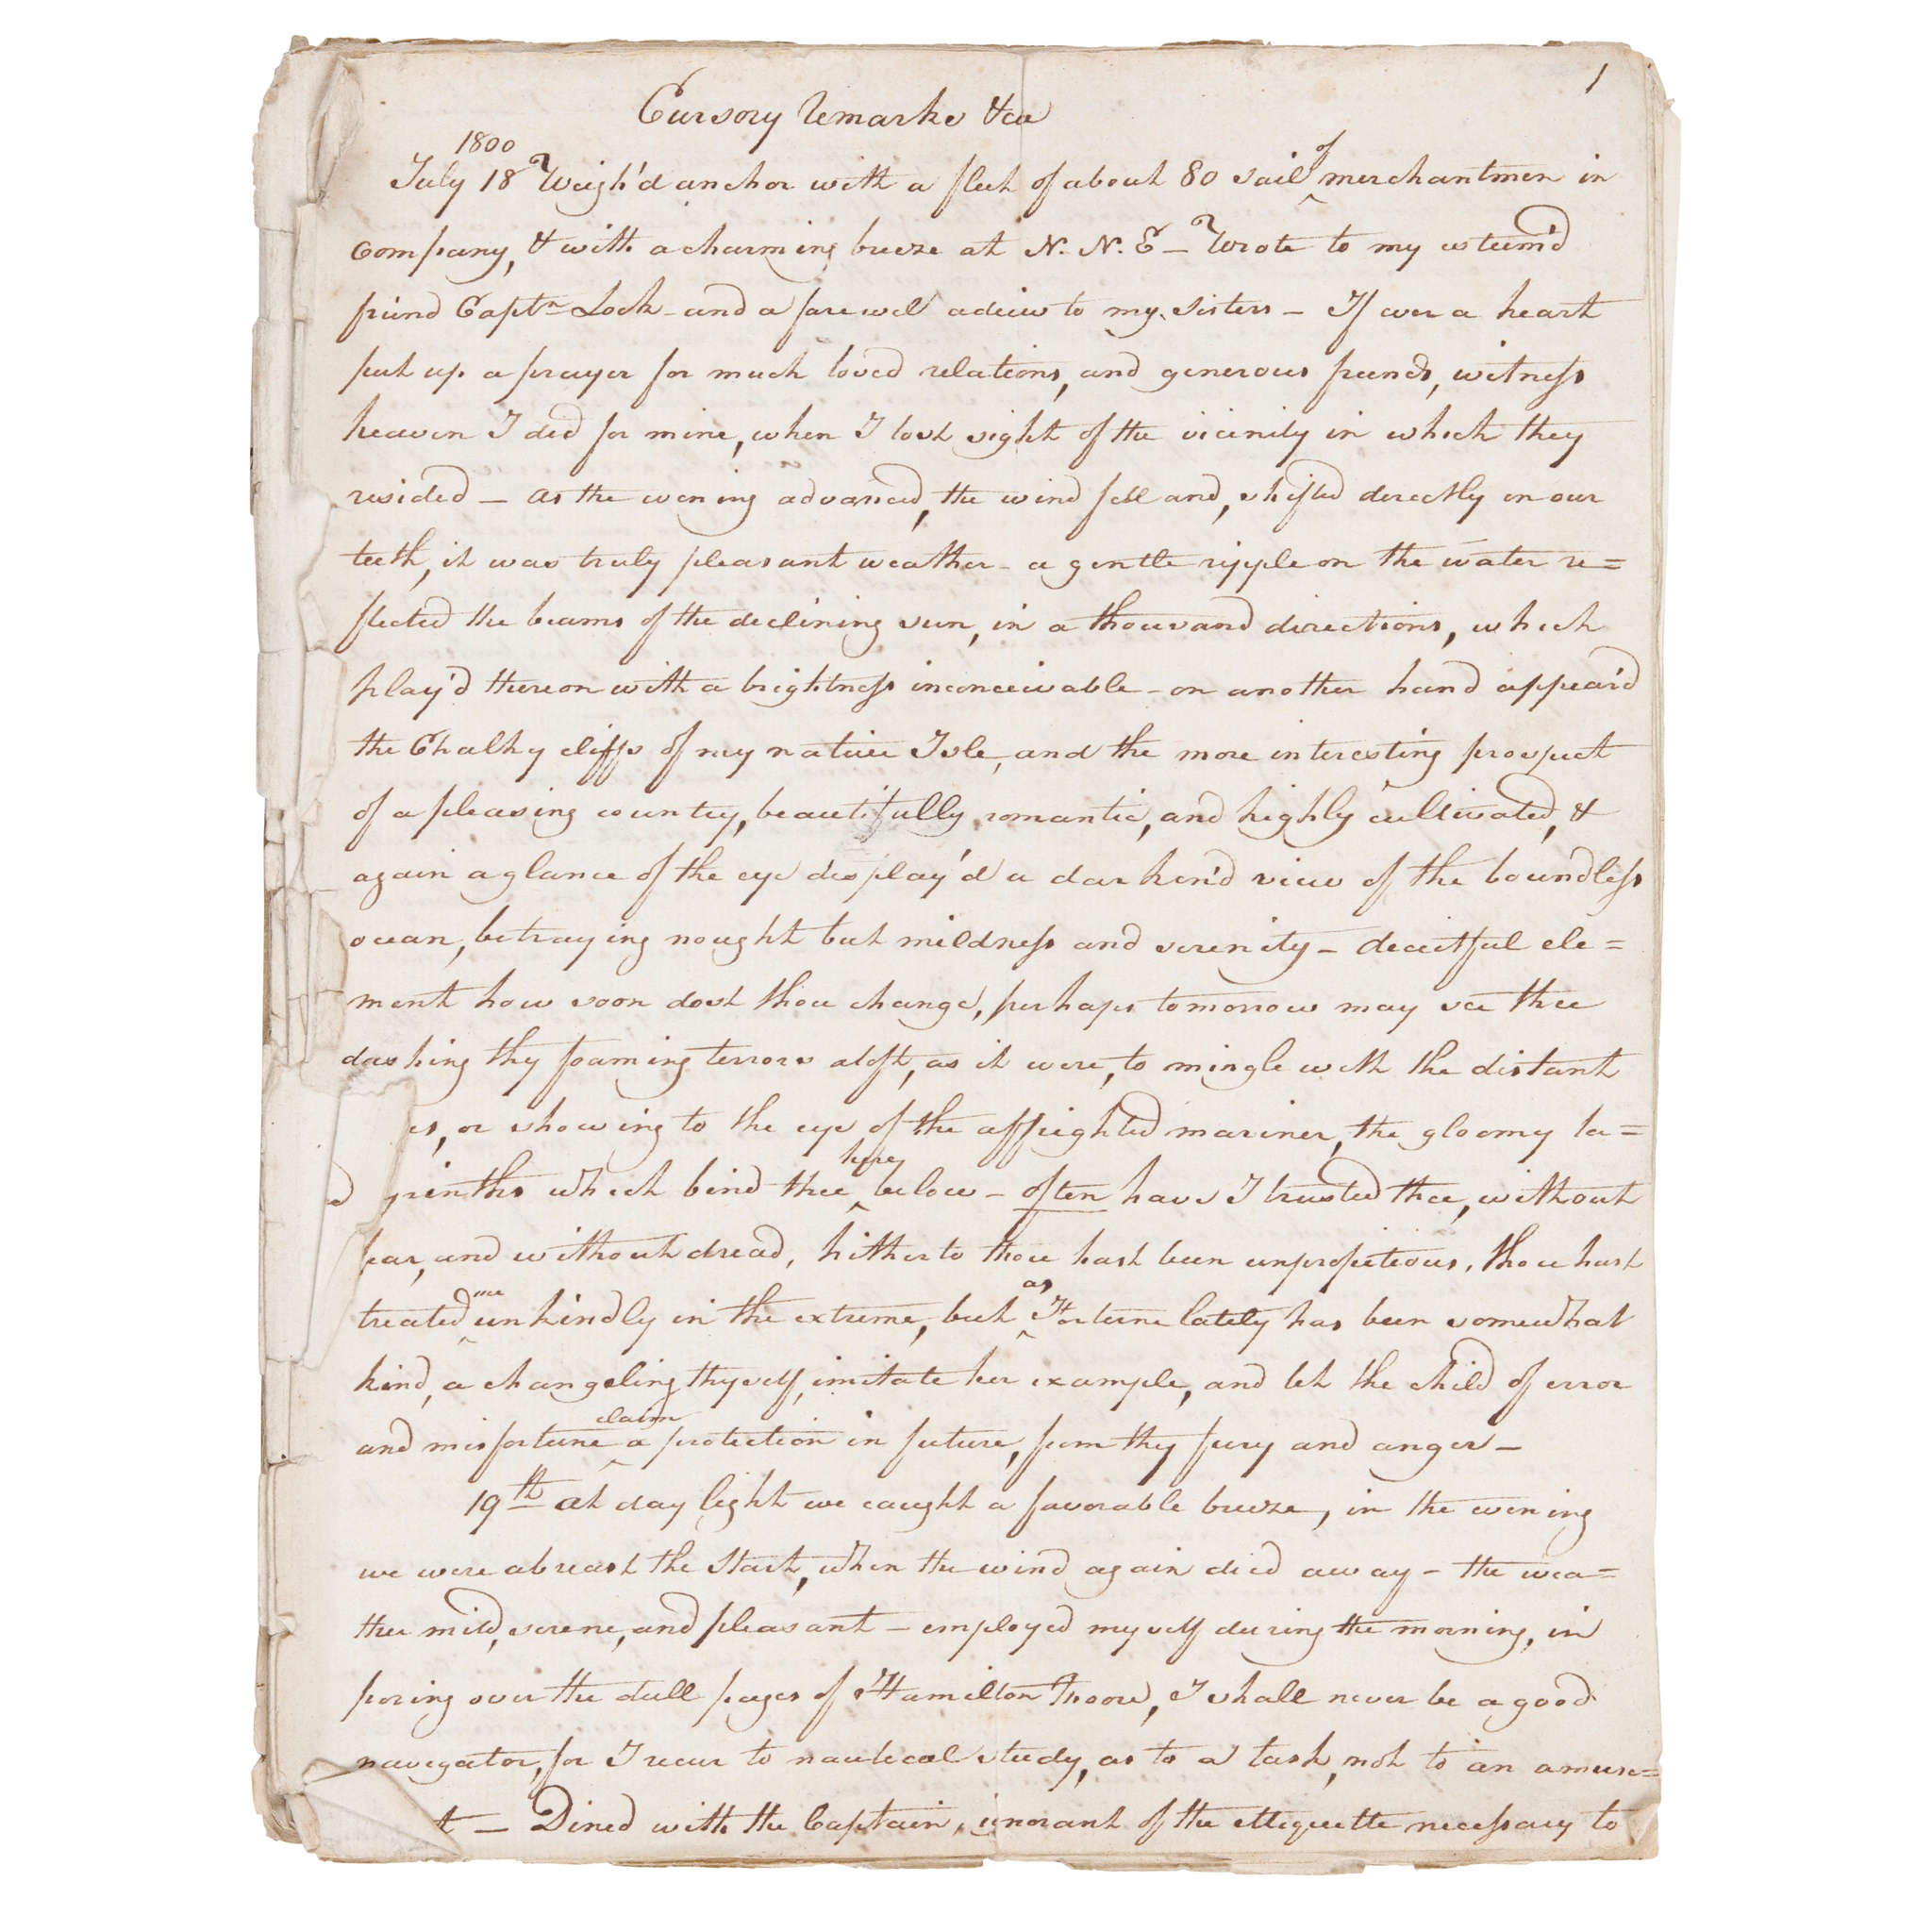 1
Cursory Remarks &ca
1800
July 18 Weigh'd anchor with a fleet of about 80 sail of merchantmen in
Company, & with a charming breze at N. N. E – Wrote to my esteem'd
friend Captn Lock – and a farewel adieu to my sisters – If ever a heart
put up a prayer for much loved relations, and generous freends, witness
heaven I did for mine, when I lost sight of the vicinity in which they
resided – as the evening advanced, the wind fell and, shifted directly in our
teeth, it was truly pleasant weather – a gentle ripple on the water re=
flected the beams of the declining sun, in a thousand directions, which
play'd thereon with a brightness inconceivable – on another hand appear'd
the Chalky cliffs of my native Isle, and the more interesting prospect
of a pleasing country, beautifully romantic, and highly cultivated, &
again a glance of the eye display'd a darken'd view of the boundless
ocean, betraying nought but mildness and serenity – deceitful ele=
ment how soon dost thou change, perhaps tomorrow may see thee
dashing thy foaming terrors aloft, as it were, to mingle with the distant
es, or showing to the eye of the affrighted mariner, the gloomy la=
yrinths which bind thee here below – often have I trusted thee, without
fear, and without dread, hitherto thou hast been unpropitious, thou hast
treated me unkindly in the extreme, but as Fortune lately has been somewhat
kind, a changeling thyself, imitate her example, and let the child of error
and misfortune claim a protection in future, from thy fury and anger –
19th at day light we caught a favorable breze, in the evening
we were abreast the Start, when the wind again died away – the wea=
ther mild, serene, and pleasant – employed myself during the morning, in
poring over the dull pages of Hamilton Moore, I shall never be a good
navegator, for I recur to nautical study, as to a task, not to an amuse=
t – Dined with the Captain, ignorant of the ettequette necessary to